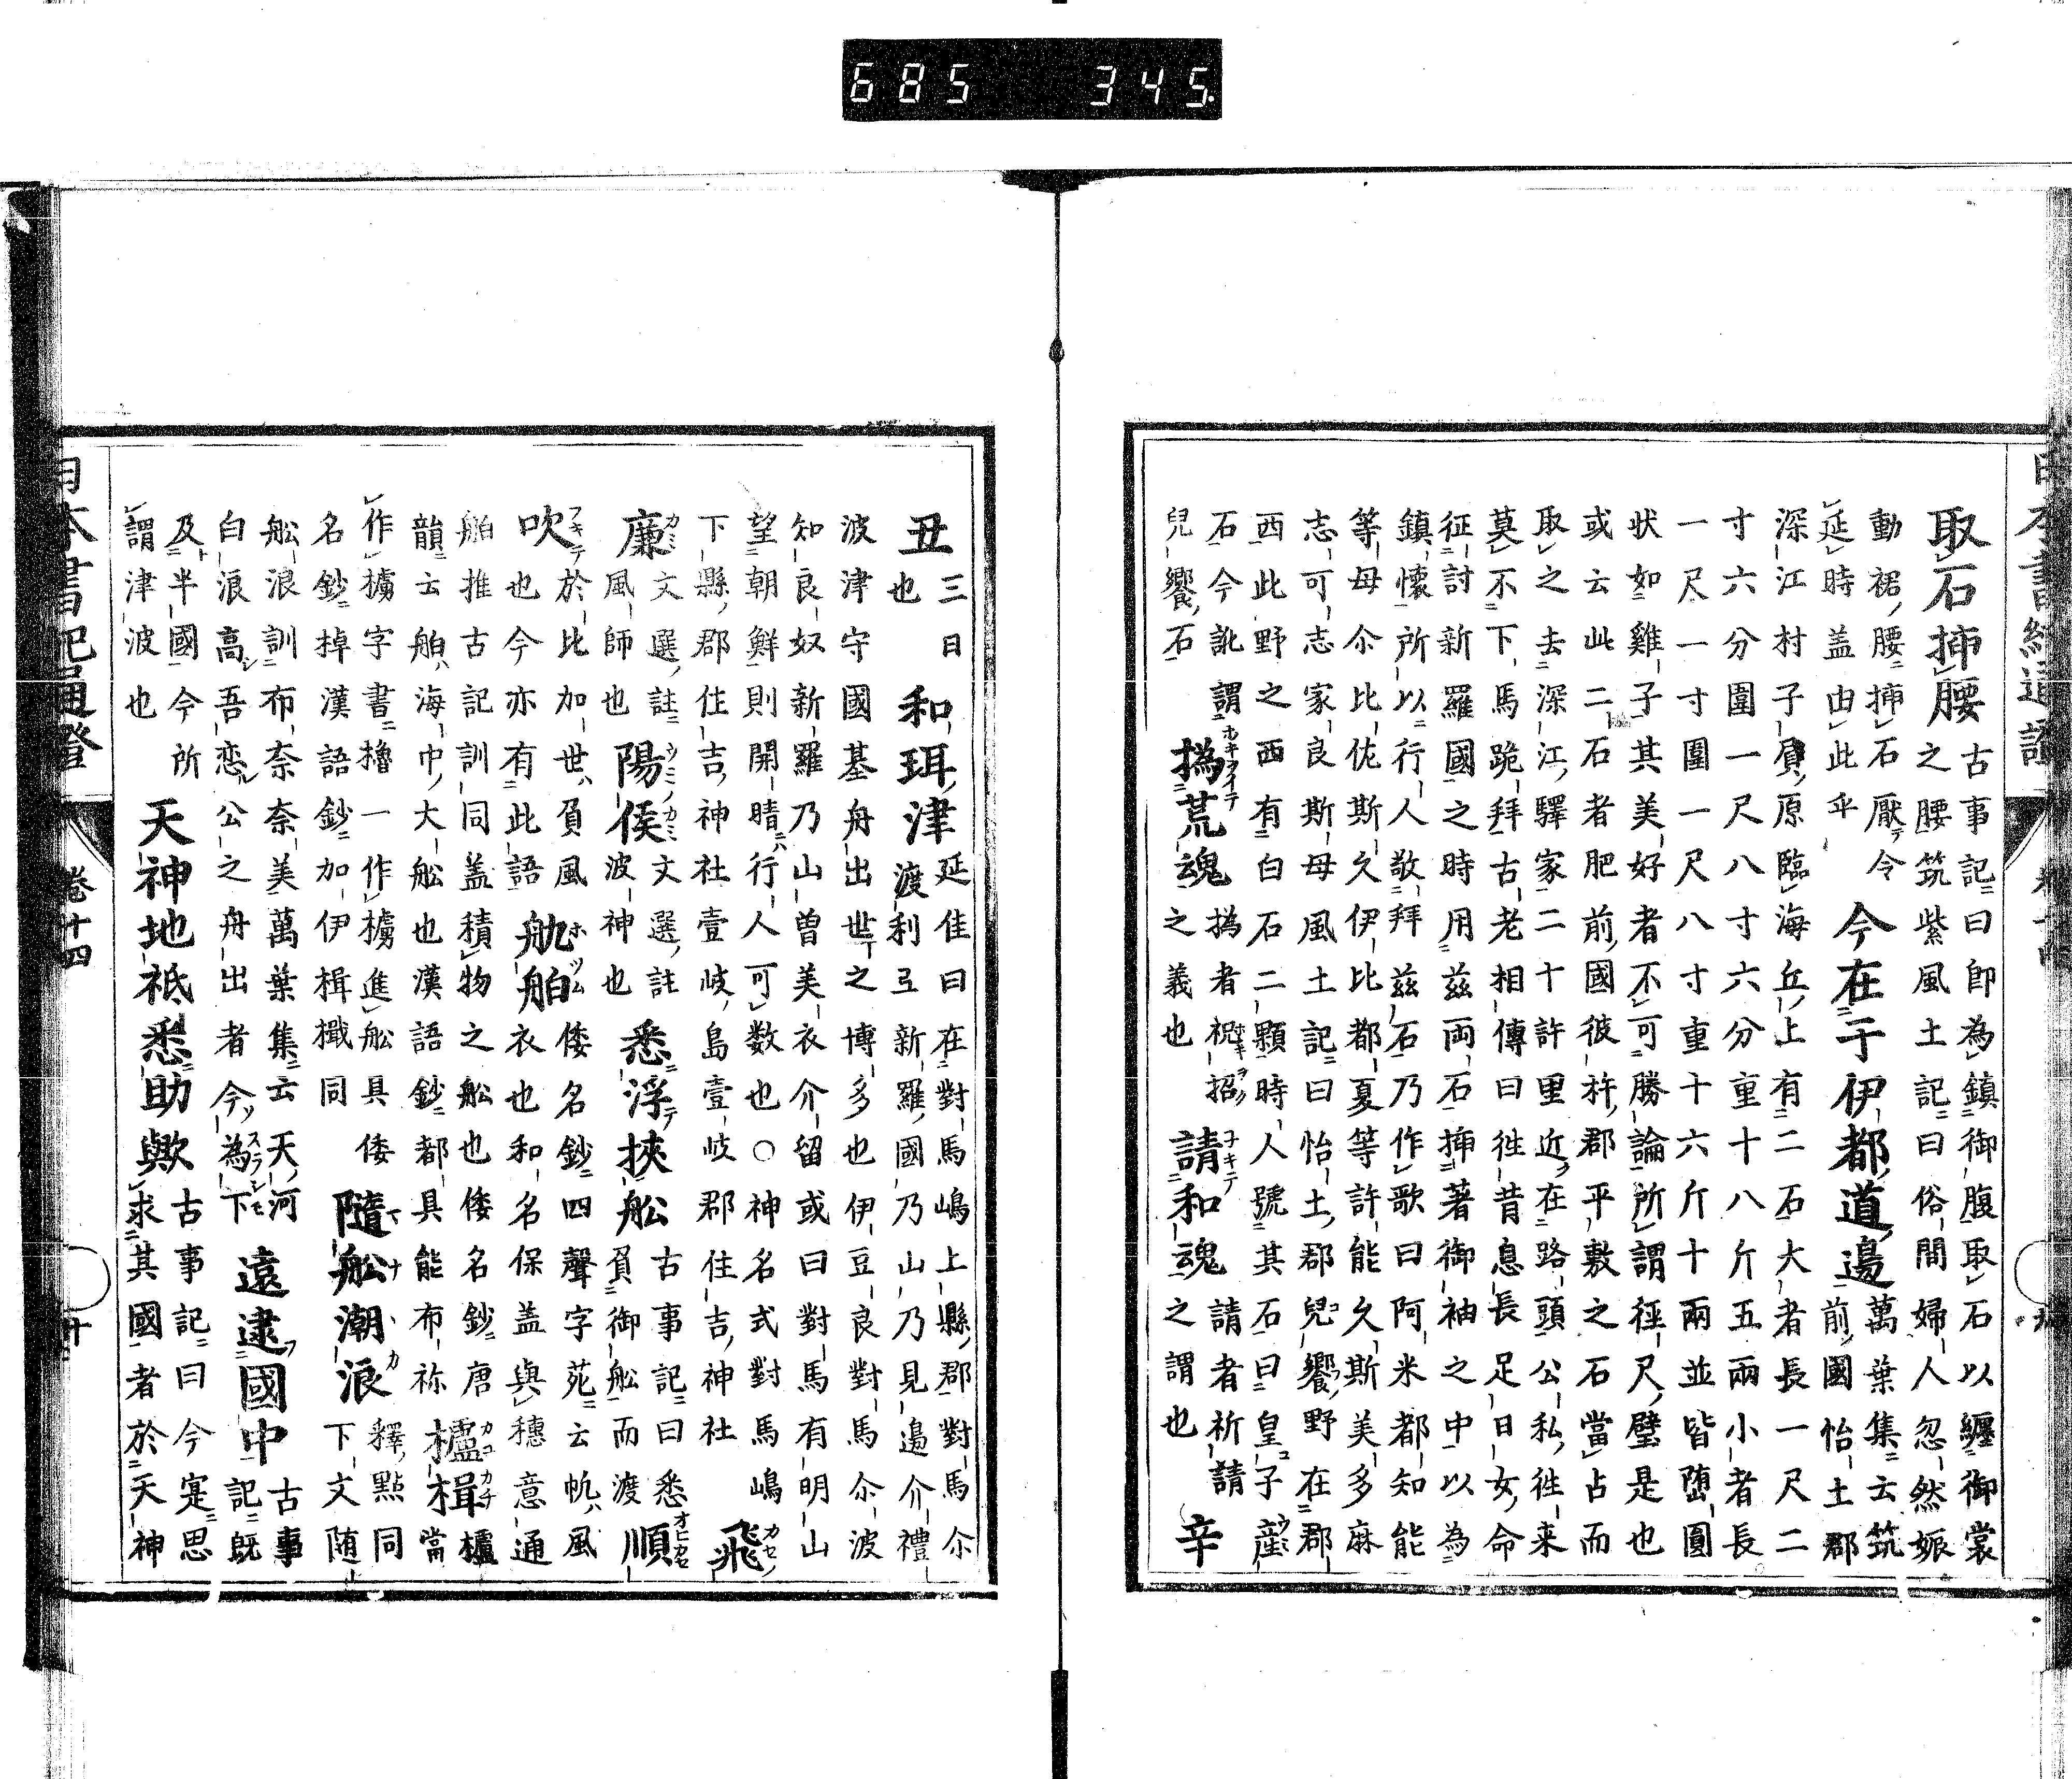 685 345
取石挿腰
古事記曰即為鎮御腹取石以纏御裳
之腰筑紫風土記曰俗間婦人忽然娠
動裙腰挿石厭令
延時盖由此乎
今在于伊都道邊
萬葉集云筑
前國怡土郡
深江村子負原臨海丘上有二石大者長一尺二
寸六分圍一尺八寸六分重十八斤五兩小者長
一尺一寸圍一尺八寸重十六斤十兩並皆堕圓
状如雞子其美好者不可勝論所謂徑尺璧是也
或云此二石者肥前國彼杵郡平敷之石當占而
取之去深江驛家二十許里近在路頭公私徃来
莫不下馬跪拜古老相傳曰徃昔息長足日女命
征討新羅國之時用茲両石挿著御袖之中以為
鎮懐所以行人敬拜茲石乃作歌曰阿米都知能
等母尓比佐斯久伊比都夏等許能久斯美多麻
志可志家良斯母風土記曰怡土郡兒饗野在郡
西此野之西有白石二顆時人號其石曰皇子産
石今訛謂
兒饗石
撝荒魂
撝者祝招
之義也
請和魂
請者祈請
之謂也
辛
丑
三日
也
和珥津
延佳曰在對馬嶋上縣郡對馬尓
渡利弖新羅國乃山乃見邉介禮
波津守國基舟出世之博多也伊豆良對馬尓波
知良奴新羅乃山曽美衣介留或曰對馬有明山
望朝鮮則開晴行人可数也〇神名式對馬嶋
下縣郡住吉神社壹岐島壹岐郡住吉神社
飛
廉
文選註
風師也
陽侯
文選註
波神也
悉浮挾舩
古事記曰悉
負御舩而渡
順
吹
於比加世負風
也今亦有此語
舤舶
倭名鈔四聲字苑云帆風
衣也和名保盖與穗意通
舶推古記訓同盖積物之舩也倭名鈔唐
韻云舶海中大舩也漢語鈔都具能布祢
櫨楫
櫨
當
作艣字書櫓一作艣進舩具倭
名鈔棹漢語鈔加伊楫檝同
隨舩潮浪
釋點同
下文随
舩浪訓布奈奈美萬葉集云天河
白浪高吾恋公之舟出者今為下
遠逮國中
古事
記既
及半國今所
謂津波也
天神地祗悉助歟
古事記曰今寔思
求其國者於天神
日本書紀通證
卷十四